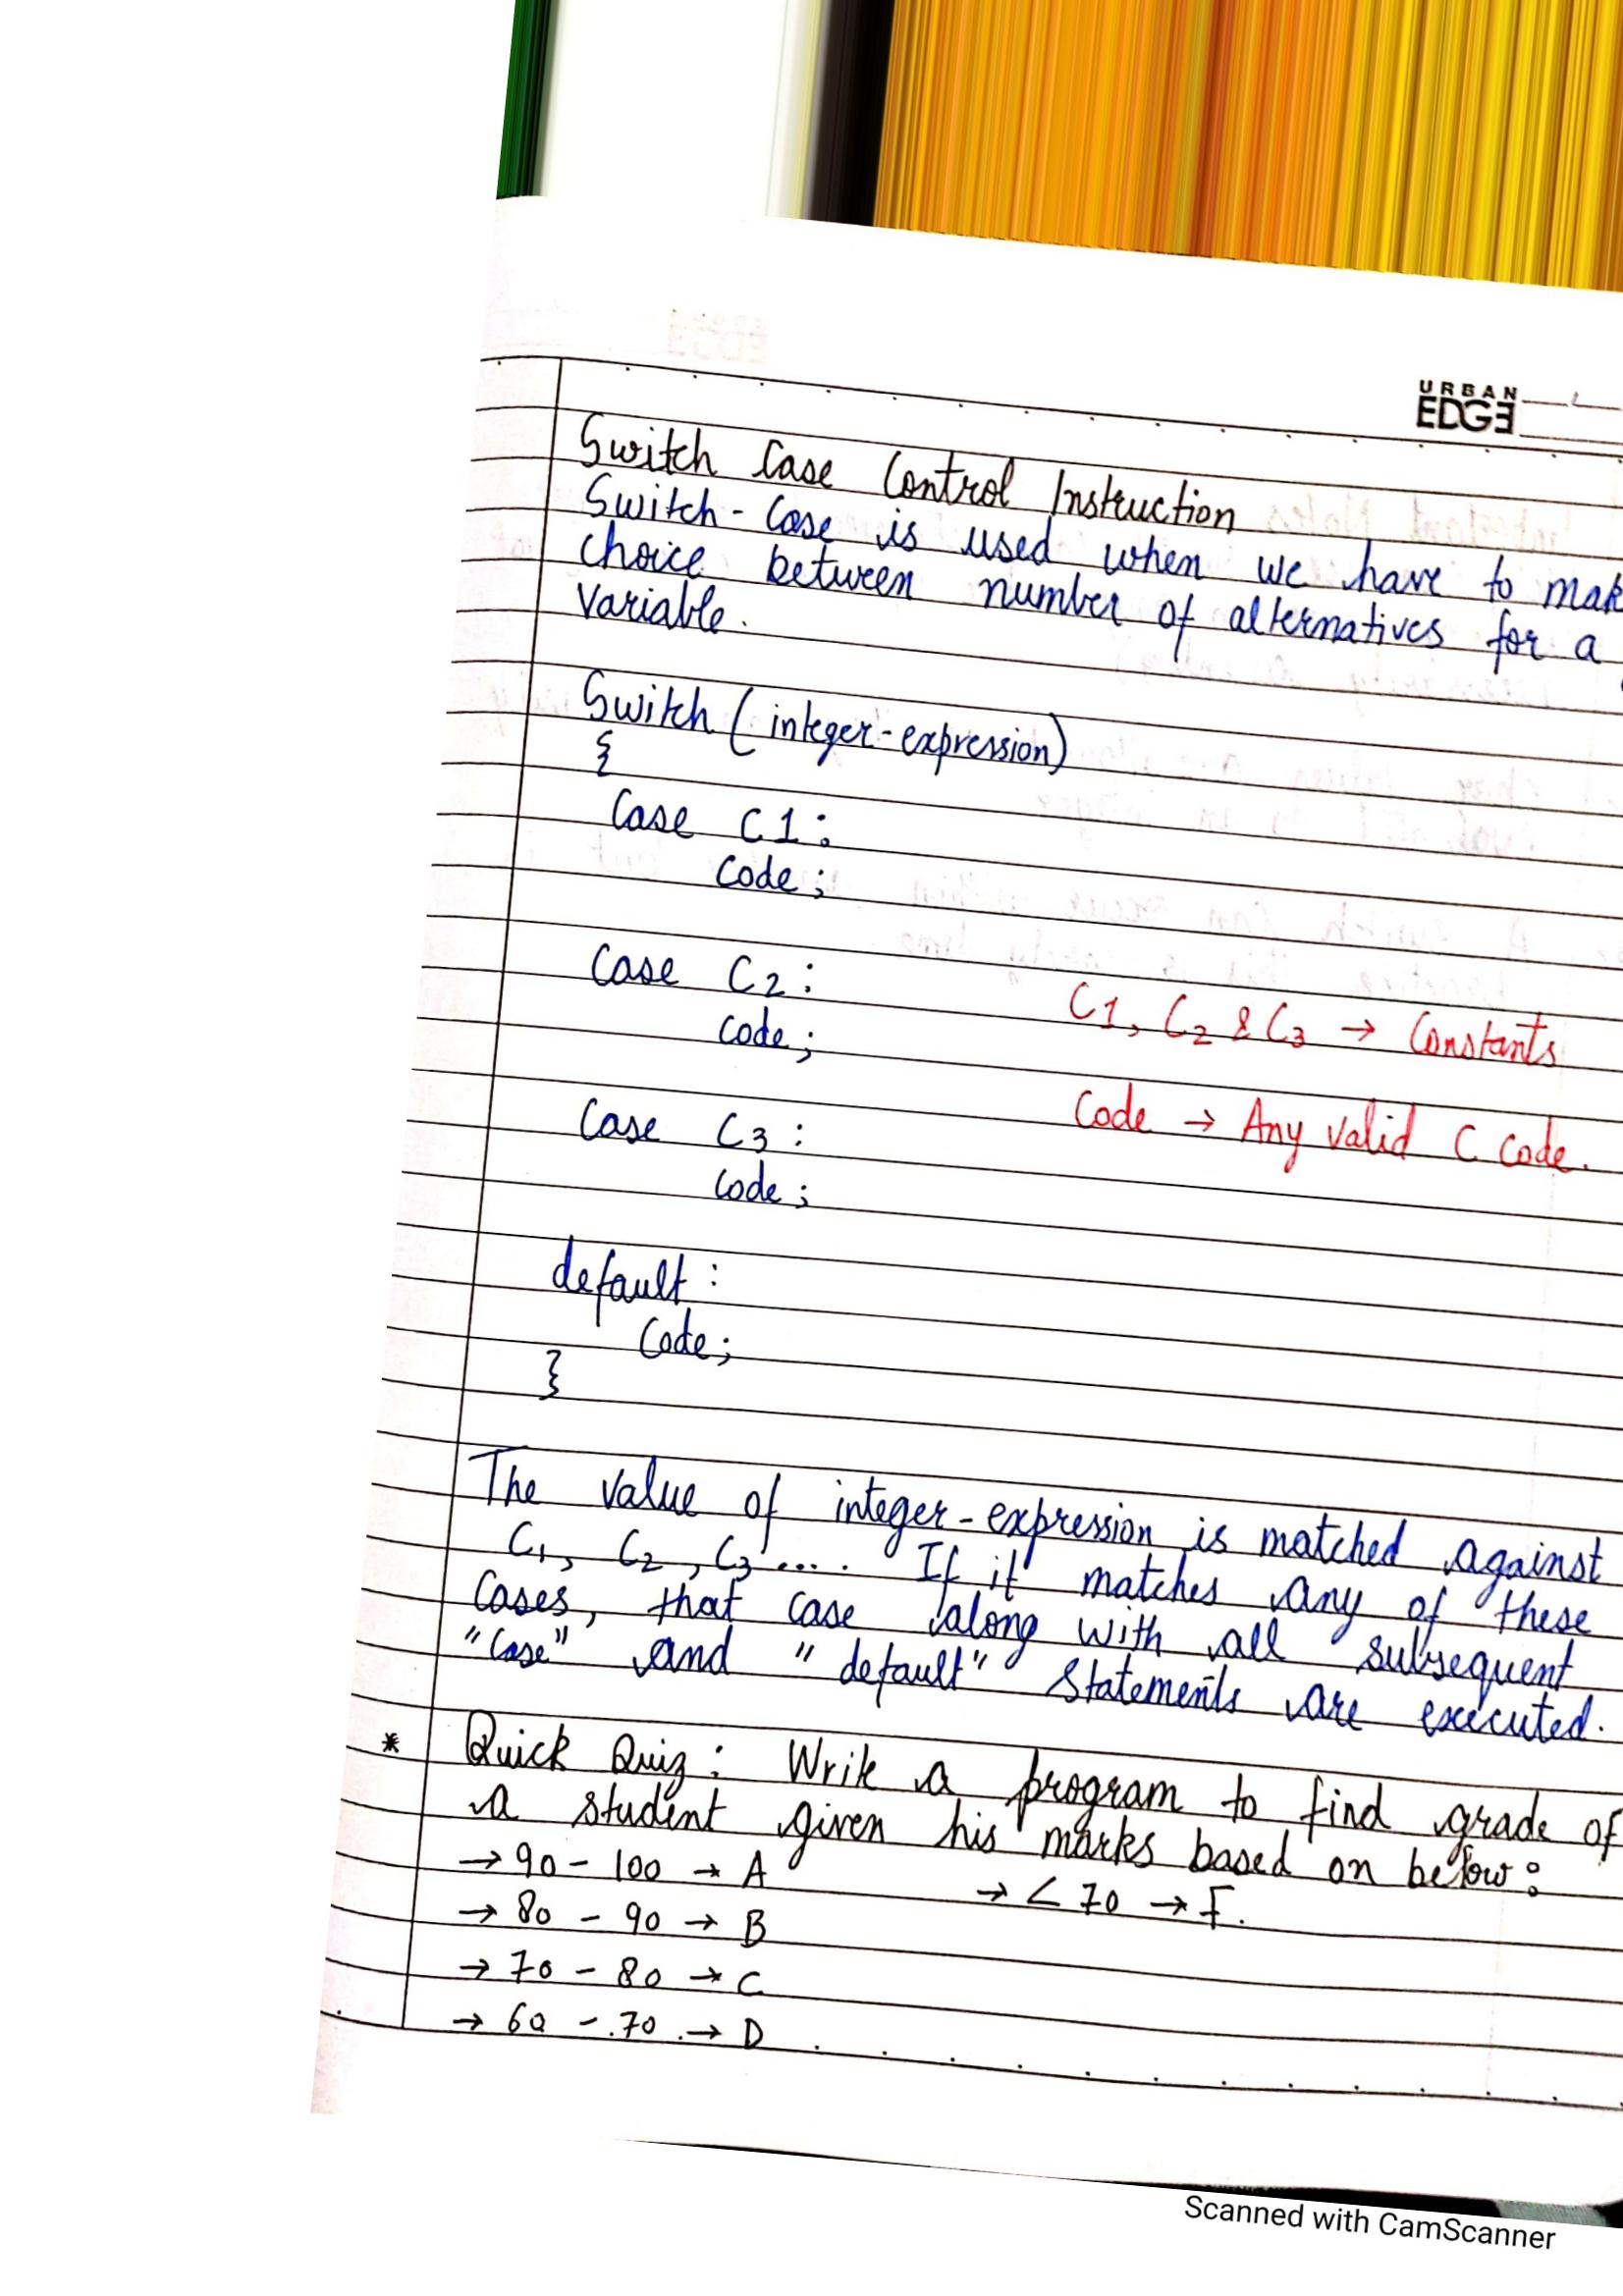 URBAN
EDGE
Switch Case Control Instruction
Switch-Case is used when we have to mak
choice between number of alternatives for a
variable.
Switch (integer-expression)
{
Case C1:
Code;
Case C2:
Code;
C1, C2 & C3 → Constants
Code → Any valid C Code.
Case C3:
Code;
default:
Code;
}
The value of integer-expression is matched against
C1, C2, C3.... If it matches any of these
Cases, that case along with all subsequent
"Case" and "default" Statements are executed.
* Quick Quiz: Write a program to find grade of
a student given his marks based on below:
→ 90 - 100 → A
→ < 70 → F.
→ 80 - 90 → B
→ 70 - 80 → C
→ 60 - 70 → D
Scanned with CamScanner